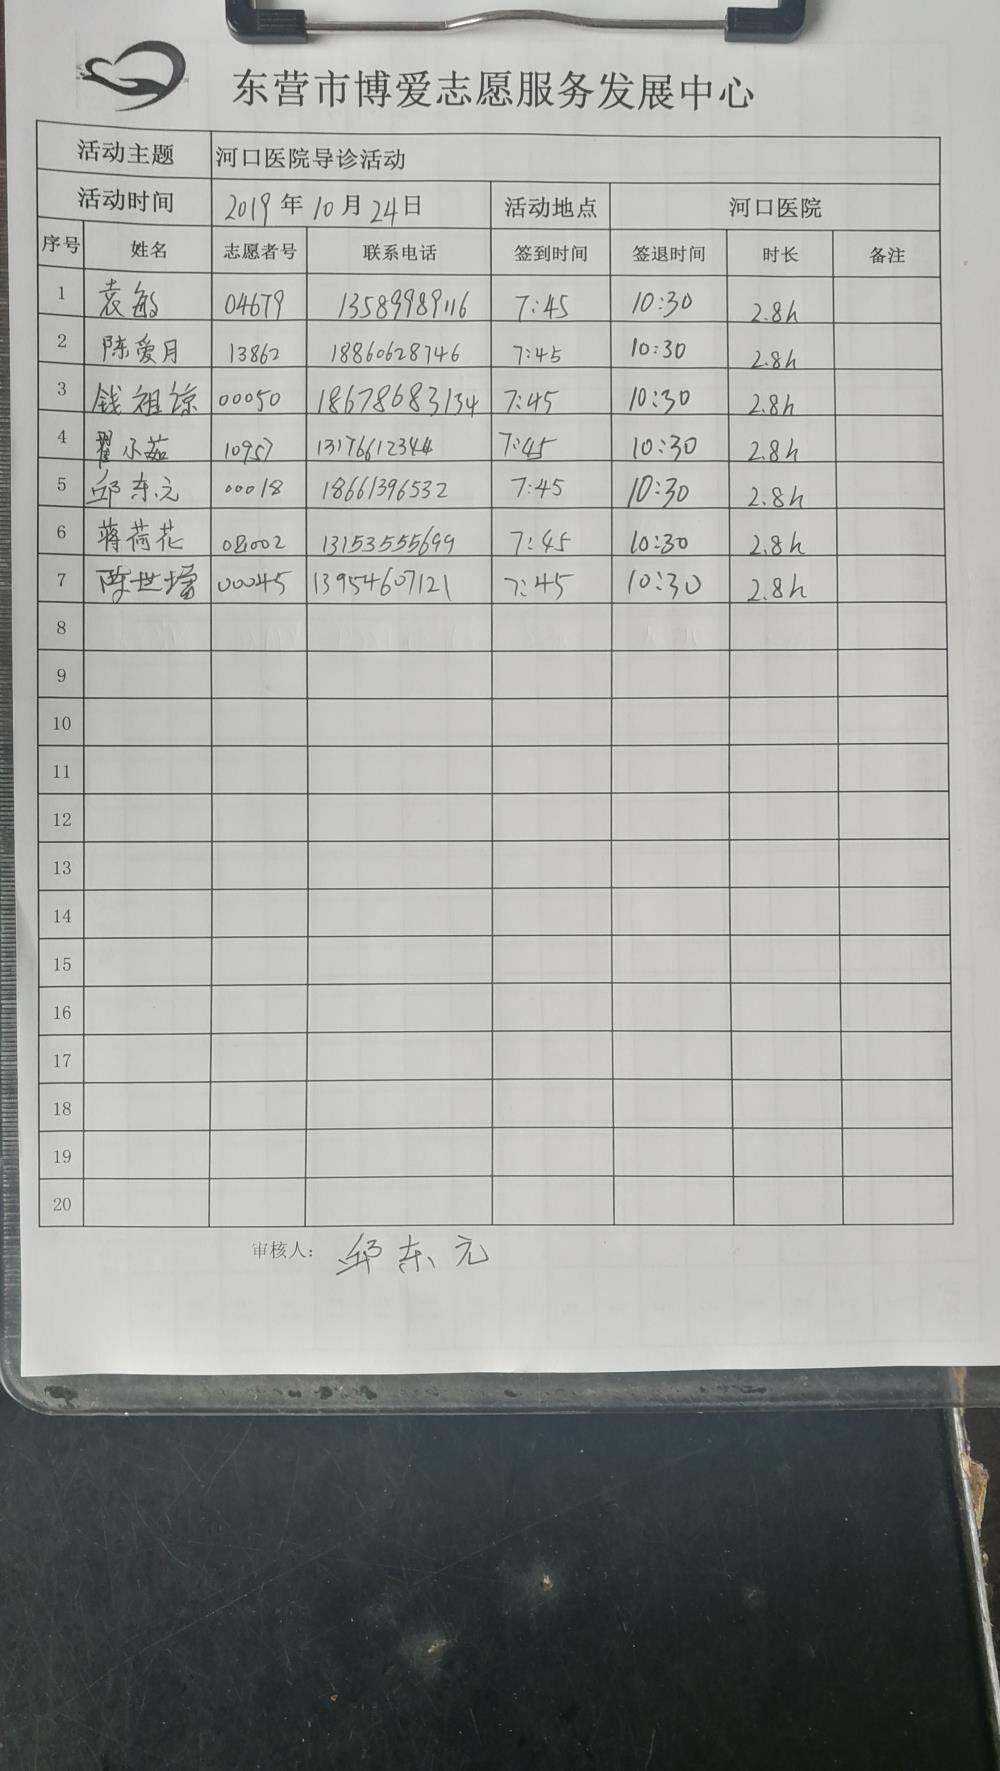 东营市博爱志愿服务发展中心
活动主题 河口医院导诊活动
活动时间 2019年10月24日 活动地点 河口医院
序号 姓名 志愿者号 联系电话 签到时间 签退时间 时长 备注
1 袁敏 04679 13589989116 7:45 10:30 2.8h
2 陈爱月 13862 18860628746 7:45 10:30 2.8h
3 钱祖谅 00050 18678683134 7:45 10:30 2.8h
4 翟小茹 10957 13176612344 7:45 10:30 2.8h
5 邱东元 00018 18661396532 7:45 10:30 2.8h
6 蒋荷花 08002 13153555699 7:45 10:30 2.8h
7 陈世 00045 13954607121 7:45 10:30 2.8h
8
9
10
11
12
13
14
15
16
17
18
19
20
审核人: 邱东元